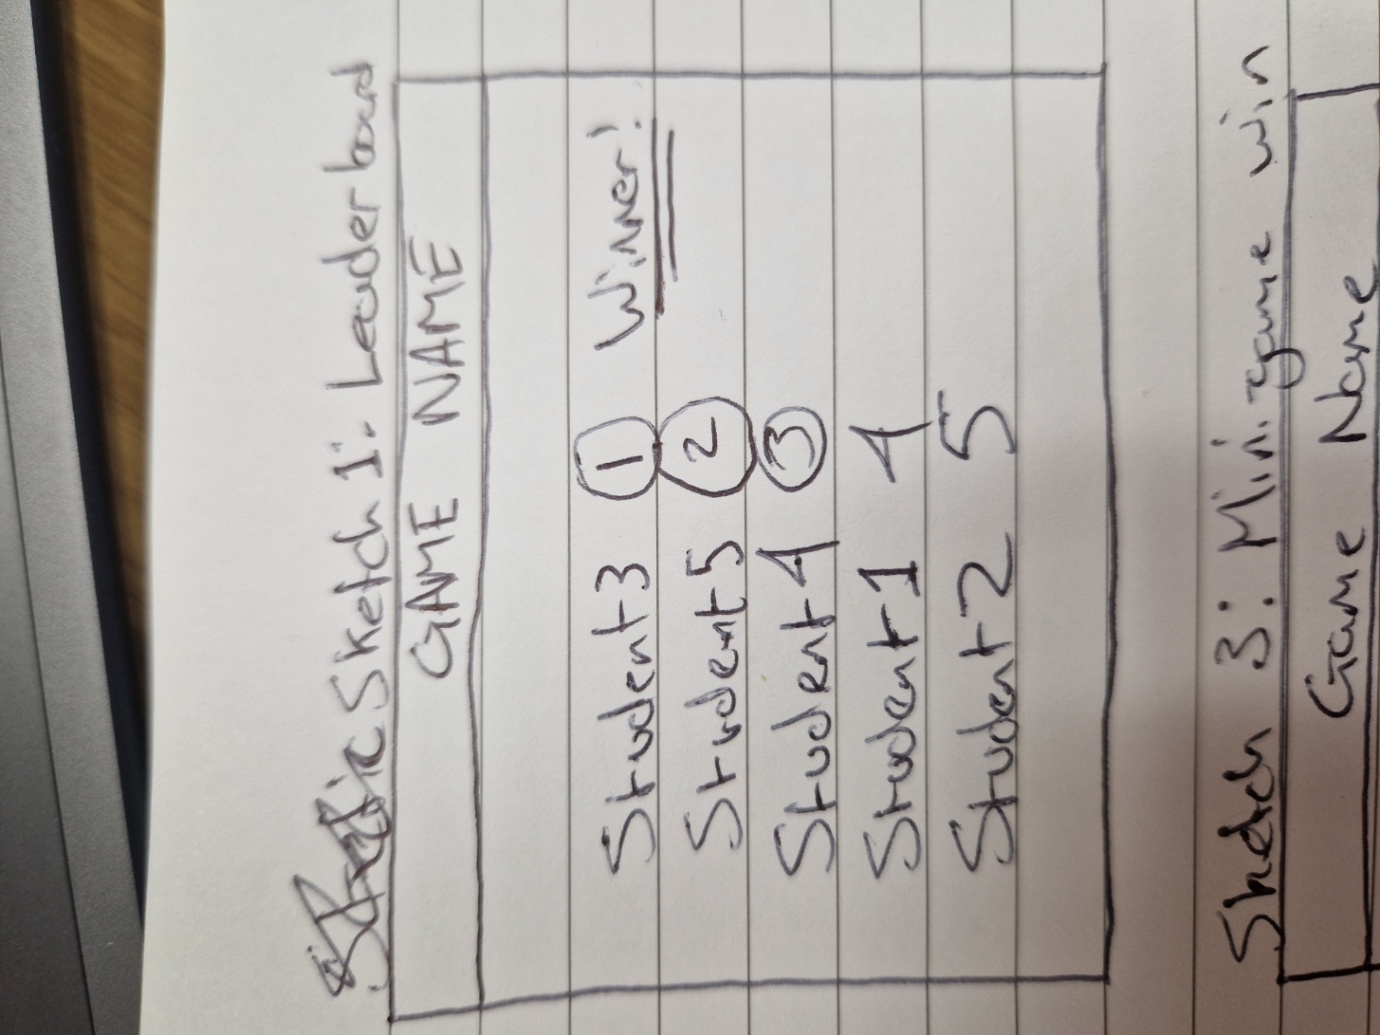 Sketch 1: Leaderboard
GAME NAME
Student 3 1 Winner!
Student 5 2
Student 4 3
Student 1 4
Student 2 5
Sketch 3: Mini game win
Game Name